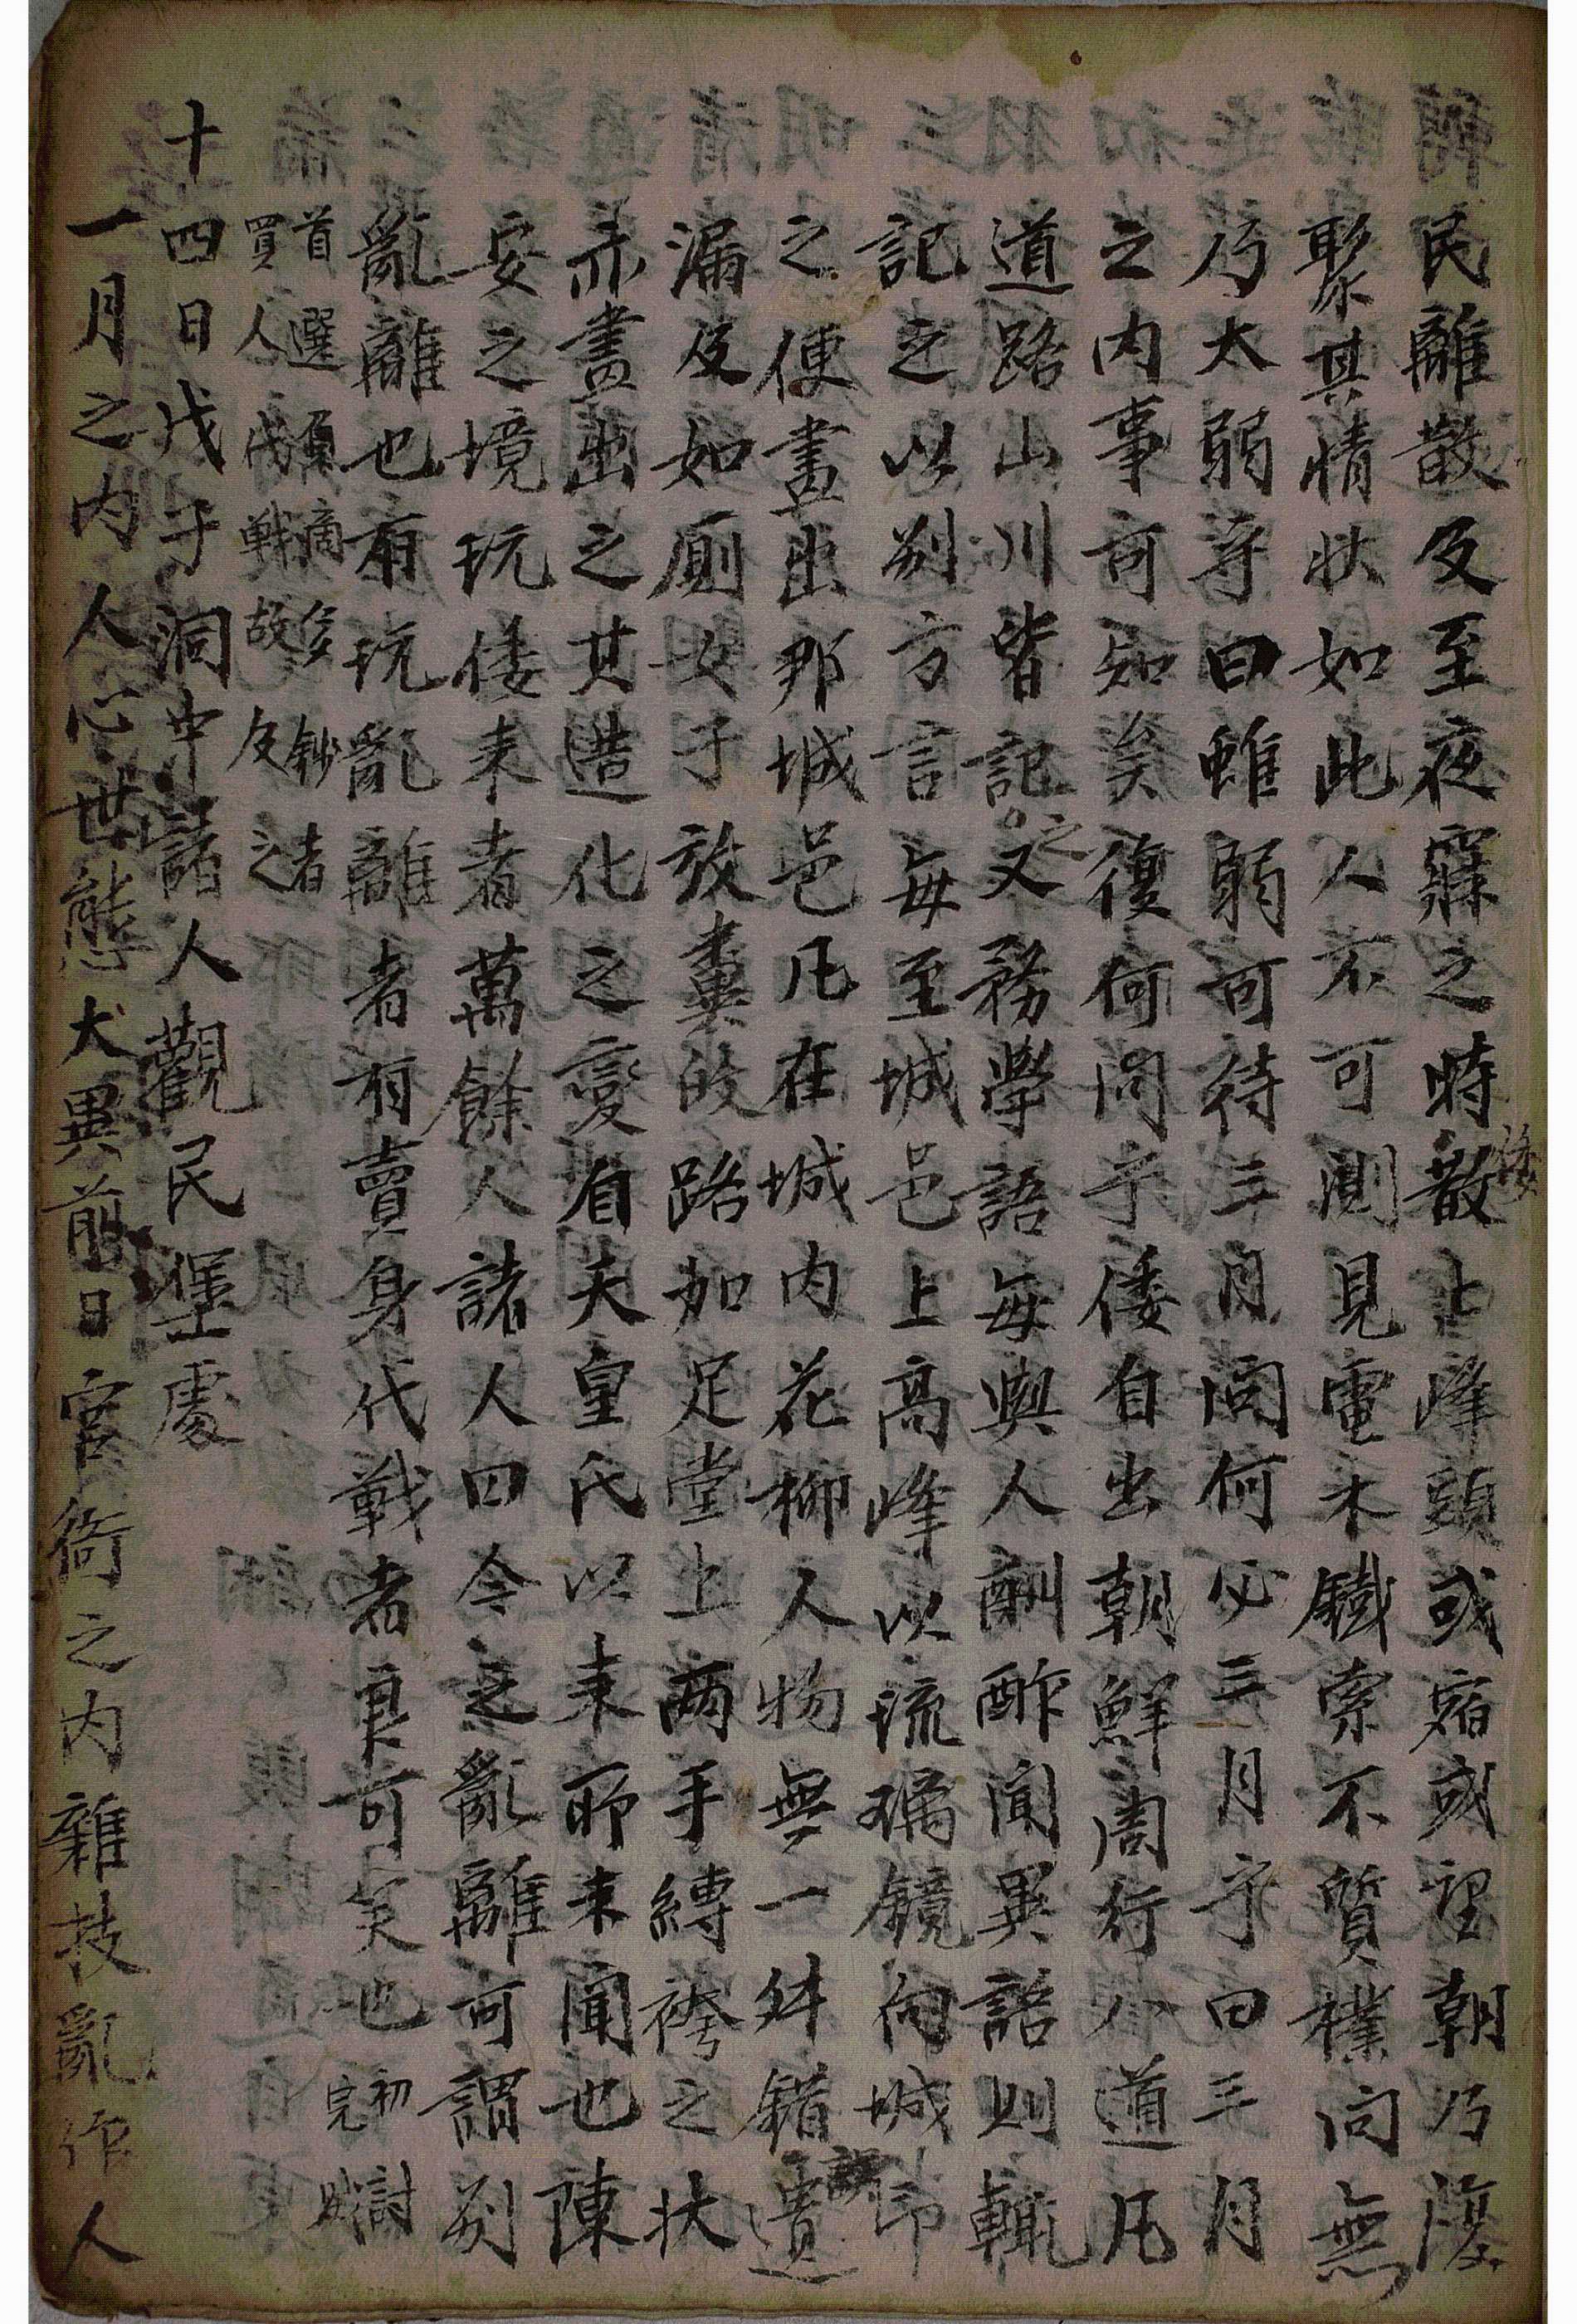 民離散及至夜寐之時散上峰頭或宿或望朝乃復
聚其情狀如此人不可測見電木鐵索不質檏向無
乃太弱乎曰雖弱可待三月問何必三月乎曰三月
之內事可知矣復何問乎倭自出朝鮮周行八道凡
道路山川皆記之又務學語每與人酬酢聞異語則輒
記之以別方言每至城邑上高峰以流璃鏡向城印
之便畫出那城邑凡在城內花柳人物無一舛錯遺
漏及如廁女子放糞的路加足堂上兩手縛袴之狀
亦盡出之其造化之變自天皇氏以來所未聞也陳
安之境玩倭來者萬餘人諸人曰今之亂離可謂別
亂離也有玩亂離者有賣身代戰者良可笑也初討完
首選願滴 鈔者
買人代戰故 反之
十四日戊子洞中諸人觀民堡處
一月之內人心世態大異前日宮衙之內雜技亂作人